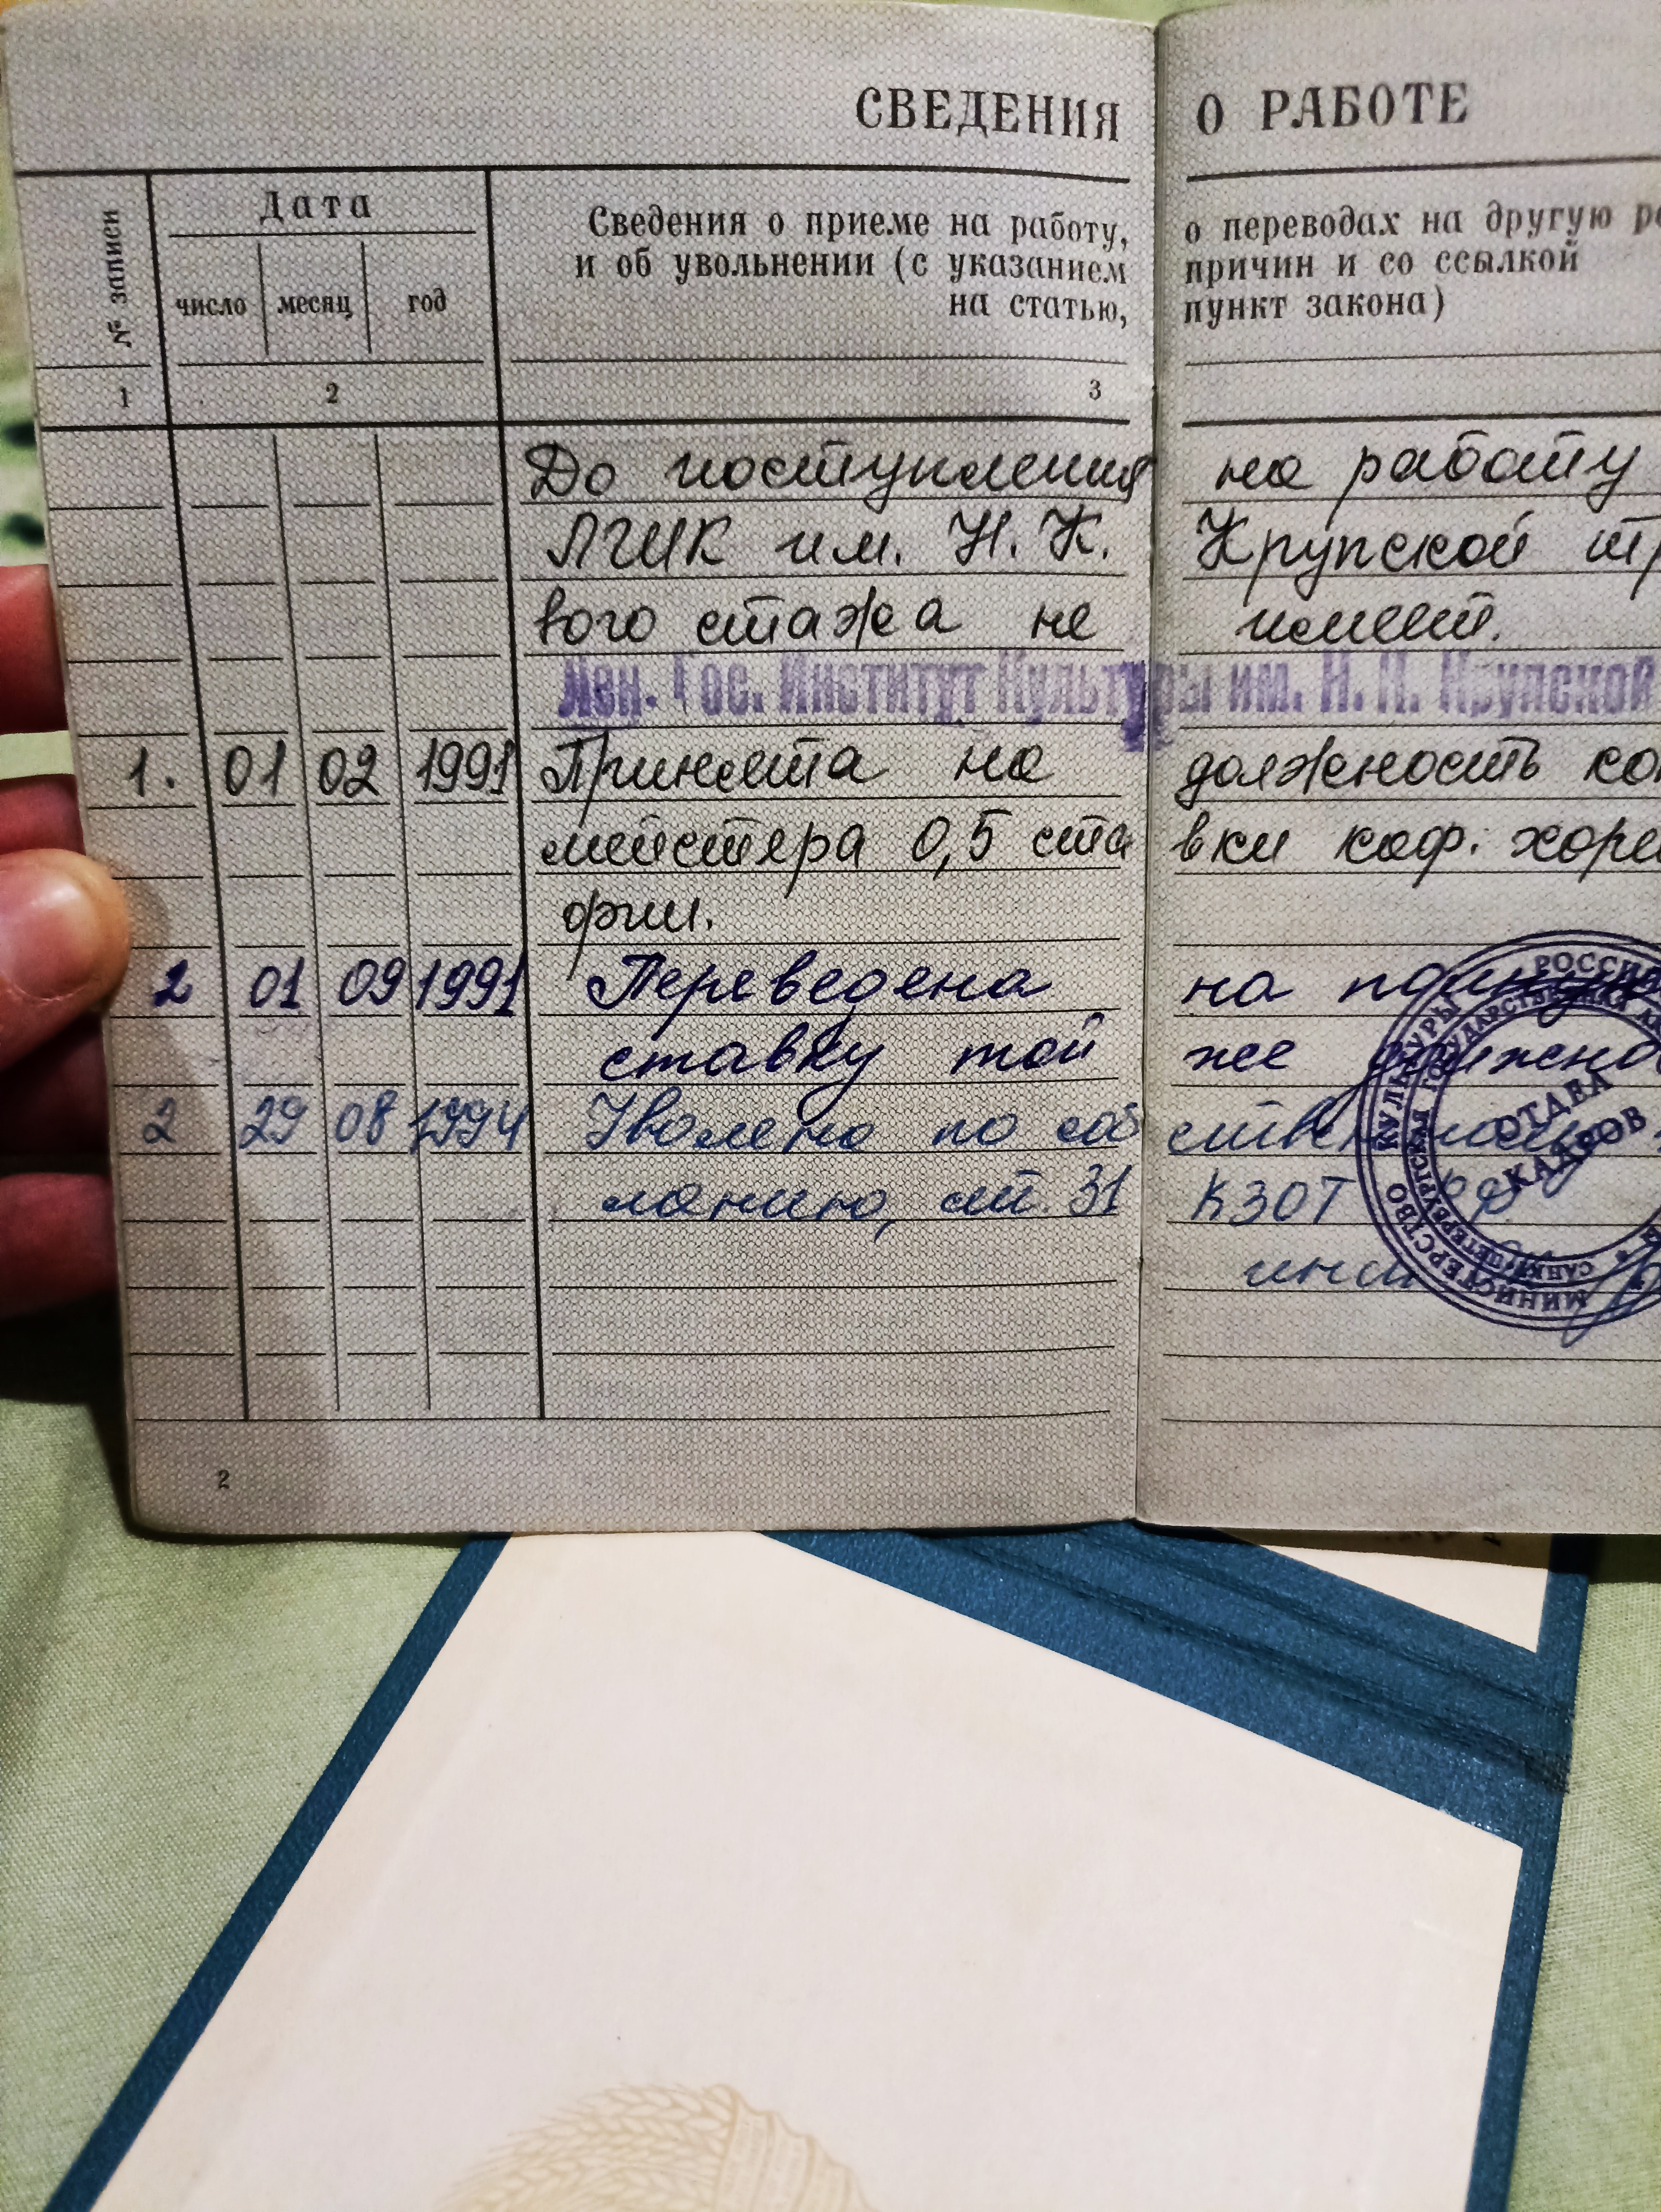 СВЕДЕНИЯ О РАБОТЕ
№ записи
Дата
число месяц год
Сведения о приеме на работу, о переводах на другую
и об увольнении (с указанием причин и со ссылкой
на статью, пункт закона)
1 2 3
До поступления на работу
ЛГИК им. Н. К. Крупской тр
вого стажа не имеет.
Лен. Гос. Институт Культуры им. Н. К. Крупской
1. 01 02 1991 Принята на должность кон
мейстера 0,5 ста вки каф. хорео
фии.
2 01 09 1991 Переведена на полную
ставку той же должно
2 29 08 1994 Уволена по соб ственному
ланию, ст. 31 КЗОТ РФ
инсп
МИНИСТЕРСТВО КУЛЬТУРЫ РОССИ
САНКТ-ПЕТЕРБУРГСКАЯ ГОСУДАРСТВЕННАЯ
ОТДЕЛ
КАДРОВ
2